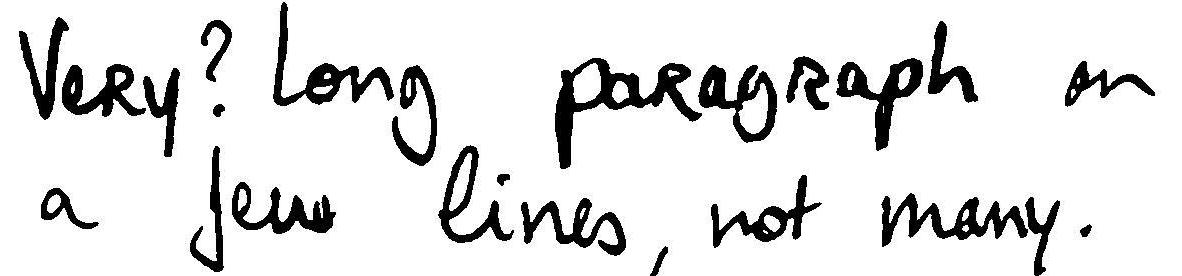 Very? Long paragraph on
a few lines, not many.